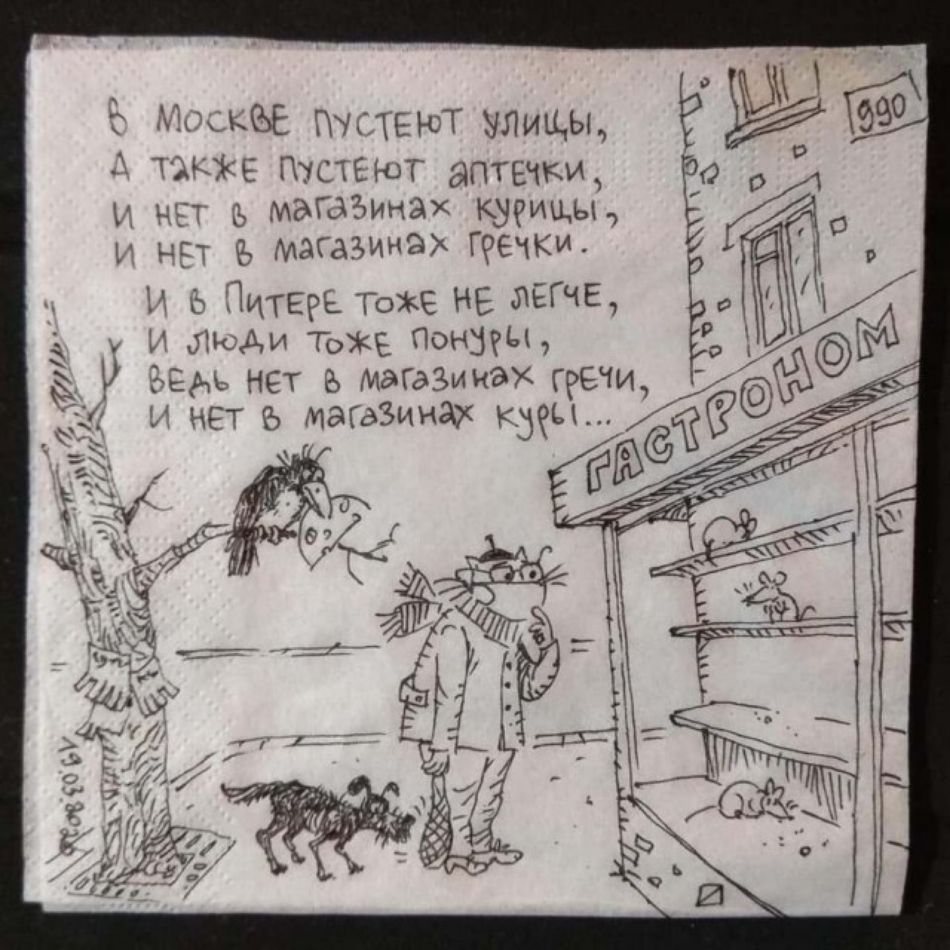 В МОСКВЕ ПУСТЕЮТ УЛИЦЫ,
А ТАКЖЕ ПУСТЕЮТ АПТЕЧКИ,
И НЕТ В МАГАЗИНАХ КУРИЦЫ,
И НЕТ В МАГАЗИНАХ ГРЕЧКИ.
И В ПИТЕРЕ ТОЖЕ НЕ ЛЕГЧЕ,
И ЛЮДИ ТОЖЕ ПОНУРЫ,
ВЕДЬ НЕТ В МАГАЗИНАХ ГРЕЧИ,
И НЕТ В МАГАЗИНАХ КУРЫ...
990
ГАСТРОНОМ
19.03.2020